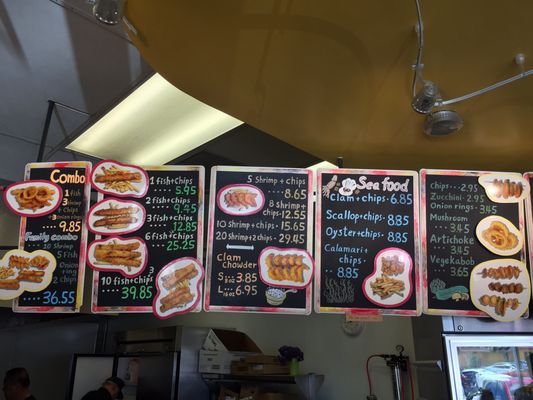 Combo
1 fish
3 shrimp
3 onion rings
9.85
Family combo
5 Fish
10 Shrimp
Onion rings
chips
36.55
1 fish+chips
5.95
2 fish+chips
9.45
3 fish+chips
12.85
6 fish+chips
25.25
10 fish+chips
39.85
5 Shrimp+chips
8.65
8 shrimp+
chips
12.55
10 shrimp+chips
15.95
20 shrimp+2 chips
29.45
Clam
Chowder
S 8oz 3.85
L 16oz 6.95
Sea food
Clam+chips 6.85
Scallop+chips 8.85
Oyster+chips 8.85
Calamari+
chips
8.85
Chips 2.95
Zucchini 2.95
Onion rings
3.45
Mushroom
3.45
Artichoke
3.45
Vegekabob
3.65